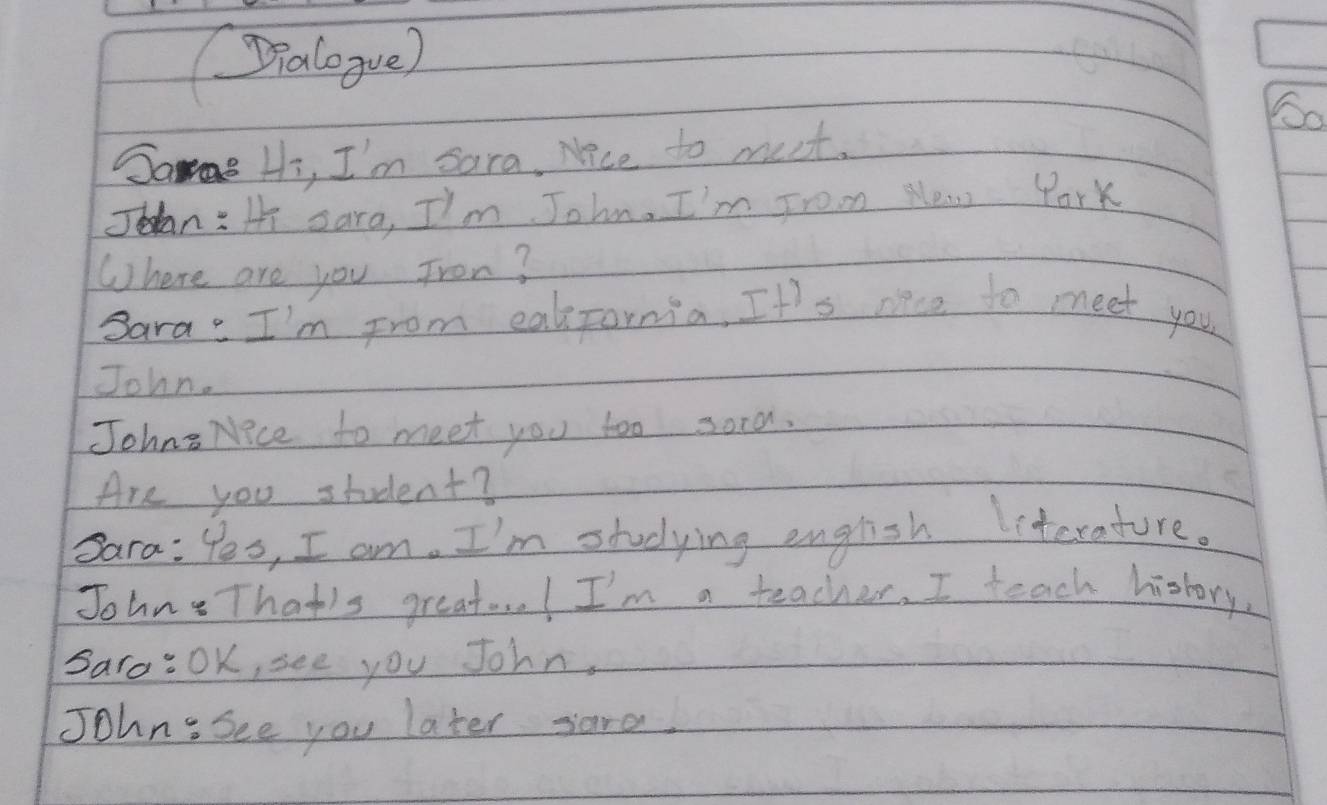 (Dialogue)
Sara: Hi, I'm Sara. Nice to meet.
John: Hi sara, I'm John. I'm From New York
Where are you Fron?
Sara: I'm From california. It's nice to meet you
John.
John: Nice to meet you too sara.
Are you student?
Sara: Yes, I am. I'm studying english literature.
John: That's great...! I'm a teacher. I teach history.
Sara: OK, see you John.
JOhn: See you later sara.
So